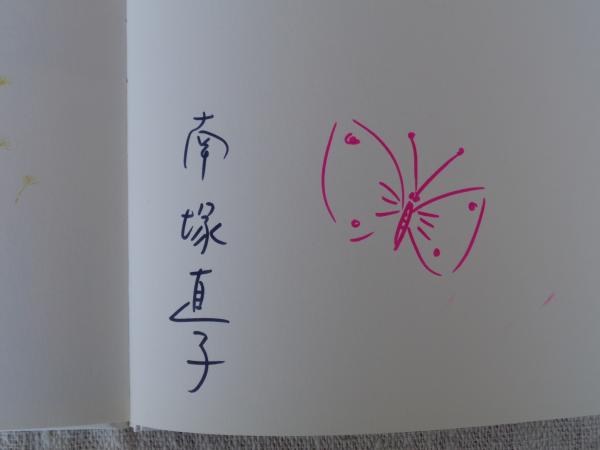 南塚直子